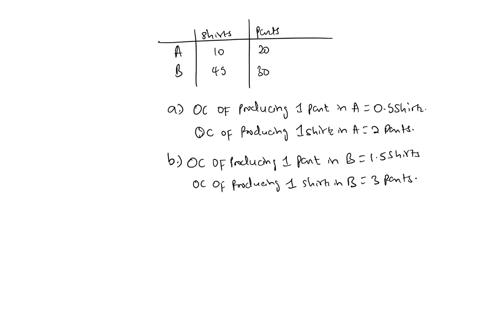 shirts Pants
A 10 20
B 45 30
a.) OC OF Producing 1 Pant in A = 0.5 Shirts.
OC of Producing 1 shirt in A = 2 Pants.
b.) OC OF Producing 1 Pant in B = 1.5 Shirts
OC of Producing 1 shirt in B = 3 Pants.